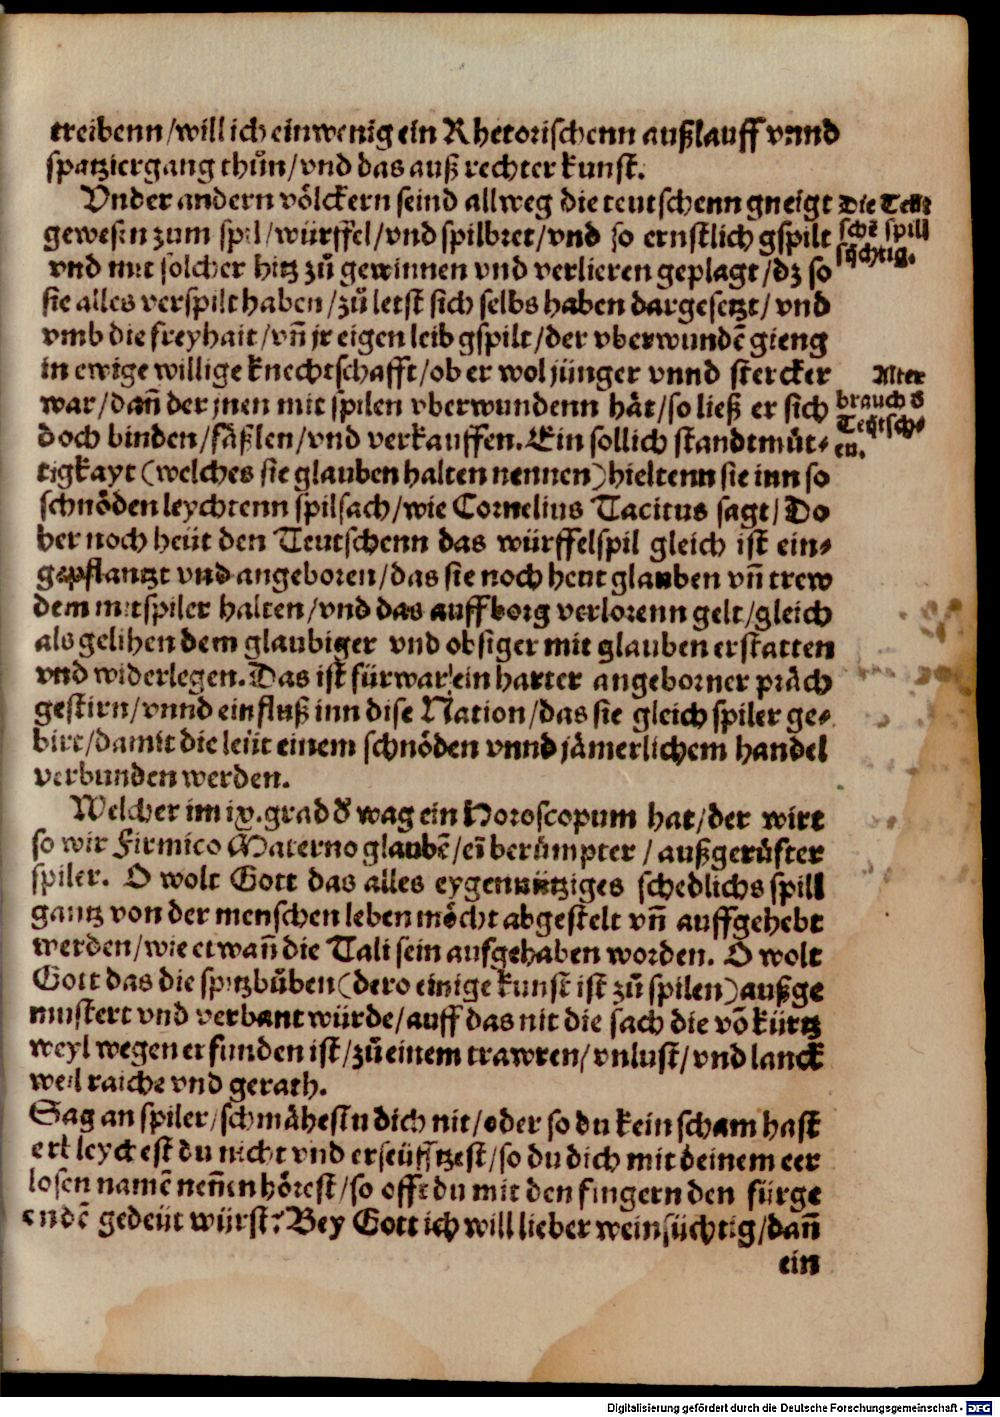 treibenn/will ich ein wenig ein Rhetorischenn außlauff vnnd
spatziergang thůn/vnd das auß rechter kunst.
Vnder andern völckern seind allweg die teutschenn gneigt
gewesen zum spil/würffel/vnd spilbret/vnd so ernstlich gspilt
vnd mit solcher hitz zů gewinnen vnd verlieren geplagt/dz so
sie alles verspilt haben/zů letst sich selbs haben dargesetzt/vnd
vmb die freyhait/vñ jr eigen leib gspilt/der vberwundē gieng
in ewige willige knechtschafft/ob er wol jünger vnnd stercker
war/dañ der jnen mit spilen vberwundenn hât/so ließ er sich
doch binden/fäßlen/vnd verkauffen. Ein sollich standtmůt-
tigkayt (welches sie glauben halten nennen) hieltenn sie inn so
schnöden leychtenn spilsach/wie Cornelius Tacitus sagt/Do
her noch heüt den Teutschenn das würffelspil gleich ist ein-
gepflantzt vnd angeboren/das sie noch heut glauben vñ trew
dem mitspiler halten/vnd das auff borg verlorenn gelt/gleich
als gelihen dem glaubiger vnd obsiger mit glauben erstatten
vnd widerlegen. Das ist fürwar ein harter angeborner präch
gestirn/vnnd einfluß inn dise Nation/das sie gleich spiler ge-
birt/damit die leüt einem schnöden vnnd jämerlichem handel
verbunden werden.
Welcher im ix. grad d' wag ein Horoscopum hat/der wirt
so wir Firmico Materno glaubē/eī berümpter/außgerůfter
spiler. O wolt Gott das alles eygennütziges schedlichs spill
gantz von der menschen leben möcht abgestelt vñ auffgehebt
werden/wie etwañ die Tali sein aufgehaben worden. O wolt
Gott das die spitzbůben (dero einige kunst ist zů spilen) außge
mustert vnd verbant würde/auff das nit die sach die vō kürtz
weyl wegen erfunden ist/zů einem trawren/vnlust/vnd lanck
weil raiche vnd gerath.
Sag an spiler/schmähestu dich nit/oder so du kein scham hast
ertleyckest du nicht vnd erseüfftzest/so du dich mit deinem eer
losen namē nen̄en hörest/so offt du mit den fingern den fürge
endē gedeüt würst? Bey Gott ich will lieber weinsüchtig/dañ
ein
Die Teüt
schē spill
süchtig.
Alter
brauch d'
Teütsch-
en.
Digitalisierung gefördert durch die Deutsche Forschungsgemeinschaft - DFG